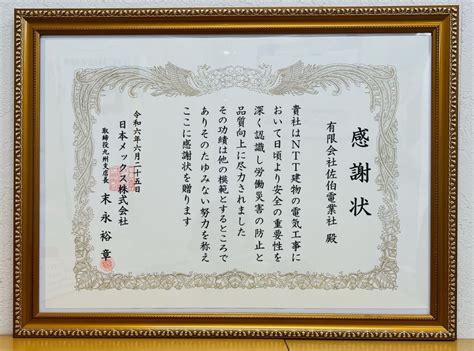 感謝状
有限会社佐伯電業社 殿
貴社はNTT建物の電気工事に
おいて日頃より安全の重要性を
深く認識し労働災害の防止と
品質向上に尽力されました
その功績は他の模範とするところで
ありそのたゆみない努力を称え
ここに感謝状を贈ります
令和六年六月二十五日
日本メックス株式会社
取締役九州支店長 末永裕章